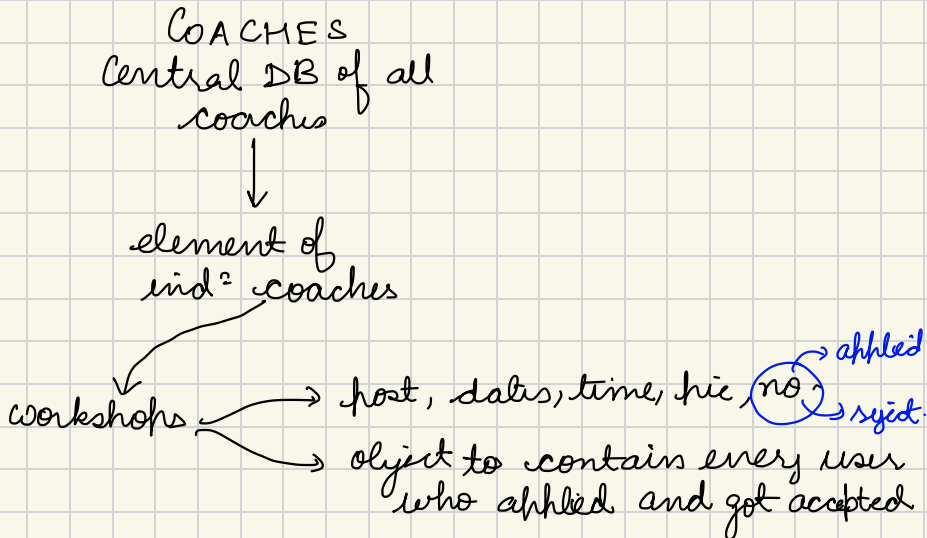 COACHES
Central DB of all
coaches
element of
indⁿ coaches
applied
workshops
post, dates, time, pic, no.
reject.
object to contain every user
who applied and got accepted